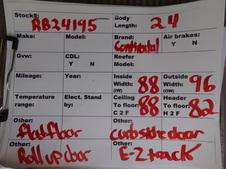 Stock#: RB24195 Body Length: 24
Make: Model: Brand: Continental Air brakes: Y N
Gvw: CDL: Y N Reefer Model:
Mileage: Year: Inside Width: (cw) 88 Outside Width: (cw) 96
Temperature range: Elect. Stand by: Ceiling To floor: C 2 F 88 Header To floor: H 2 F 82
Other: Flat floor Other: curbside door
Other: Roll up door Other: E-Z track